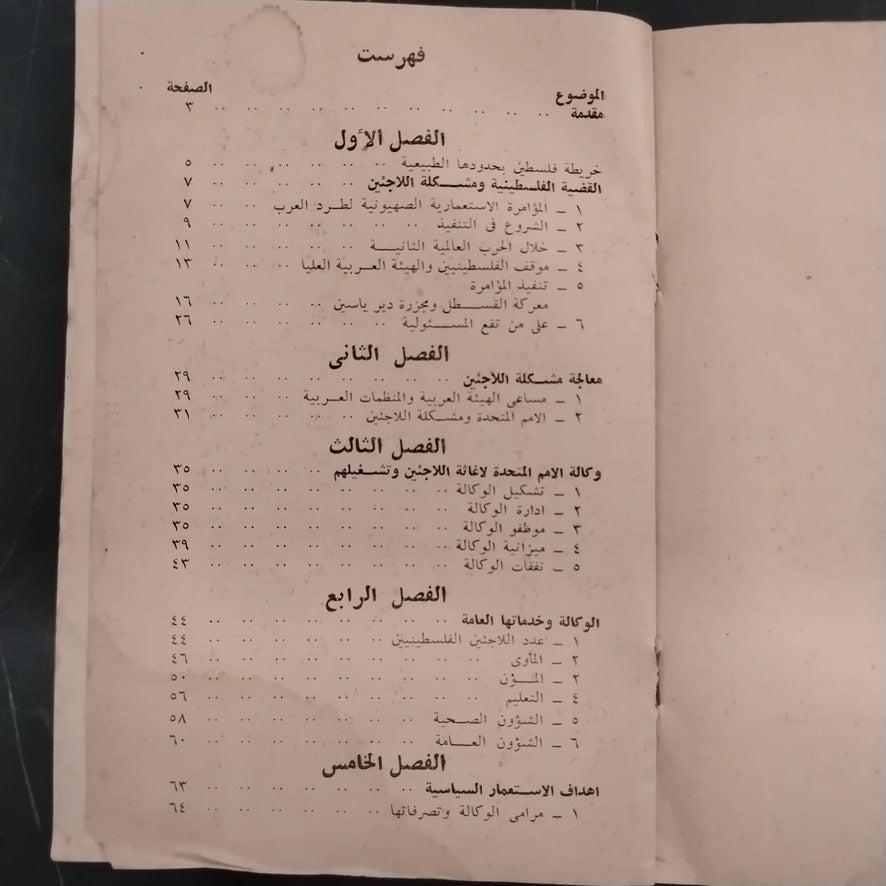 فهرست
الموضوع الصفحة
مقدمة .. .. .. .. .. .. .. .. .. ٣
الفصل الأول
خريطة فلسطين بحدودها الطبيعية .. .. .. .. .. .. ٥
القضية الفلسطينية ومشكلة اللاجئين .. .. .. .. .. ٧
١ ـ المؤامرة الاستعمارية الصهيونية لطرد العرب .. .. .. ٧
٢ ـ الشروع فى التنفيذ .. .. .. .. .. .. .. ٩
٣ ـ خلال الحرب العالمية الثانية .. .. .. .. .. ١١
٤ ـ موقف الفلسطينيين والهيئة العربية العليا .. .. .. ١٣
٥ ـ تنفيذ المؤامرة
معركة القسطل ومجزرة دير ياسين .. .. .. .. .. ١٦
٦ ـ على من تقع المسئولية .. .. .. .. .. .. ٢٦
الفصل الثانى
معالجة مشكلة اللاجئين .. .. .. .. .. .. .. ٢٩
١ ـ مساعى الهيئة العربية والمنظمات العربية .. .. .. ٢٩
٢ ـ الامم المتحدة ومشكلة اللاجئين .. .. .. .. .. ٣١
الفصل الثالث
وكالة الامم المتحدة لاغاثة اللاجئين وتشغيلهم .. .. .. .. ٣٥
١ ـ تشكيل الوكالة .. .. .. .. .. .. .. ٣٥
٢ ـ ادارة الوكالة .. .. .. .. .. .. .. ٣٥
٣ ـ موظفو الوكالة .. .. .. .. .. .. .. ٣٥
٤ ـ ميزانية الوكالة .. .. .. .. .. .. .. ٣٩
٥ ـ نفقات الوكالة .. .. .. .. .. .. .. ٤٣
الفصل الرابع
الوكالة وخدماتها العامة .. .. .. .. .. .. .. ٤٤
١ ـ عدد اللاجئين الفلسطينيين .. .. .. .. .. .. ٤٤
٢ ـ المأوى .. .. .. .. .. .. .. .. ٤٦
٢ ـ المؤن .. .. .. .. .. .. .. .. ٥٠
٤ ـ التعليم .. .. .. .. .. .. .. .. ٥٦
٥ ـ الشؤون الصحية .. .. .. .. .. .. .. ٥٨
٦ ـ الشؤون العامة .. .. .. .. .. .. .. ٦٠
الفصل الخامس
اهداف الاستعمار السياسية .. .. .. .. .. .. .. ٦٣
١ ـ مرامى الوكالة وتصرفاتها .. .. .. .. .. .. ٦٤